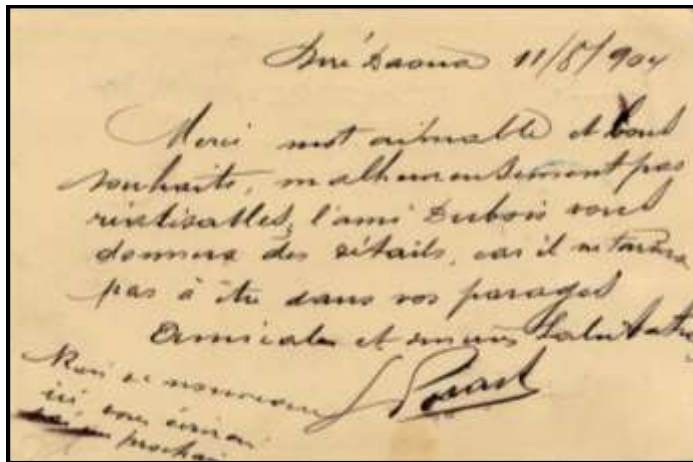 Diré Daoua 11/8/904
Merci mot aimable et bons
souhaits, malheureusement pas
réalisables, l'ami Dubois vous
donnera des détails, car il ne tardera
pas à être dans vos parages
Amicales et sincères Salutations
Rien de nouveau
ici vous écrirai
prochain